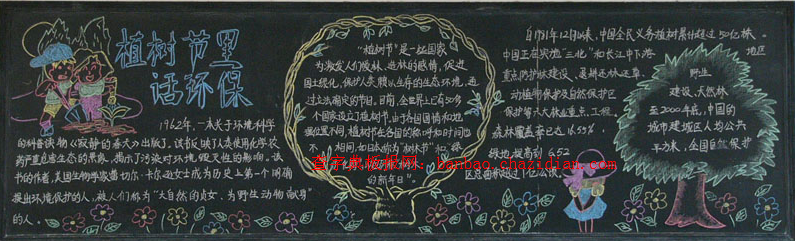 植树节里
话环保
1962年，一本关于环境科学
的科普读物《寂静的春天》出版了，该书反映了人类使用化学农
药严重危害生态的景象，揭示了污染对环境毁灭性的影响。该
书的作者，美国生物学家蕾切尔·卡尔逊女士成为历史上第一个明确
提出环境保护的人，被人们称为"大自然的贞女，为野生动物献身
的人。
"植树节"是一些国家
为激发人们爱林、造林的感情，促进
国土绿化，保护人类赖以生存的生态环境，通
过立法确定的节日。目前，全世界上已有50多
个国家设立了植树节。由于各国国情和地
理位置不同，植树节在各国的称呼和时间也
不相同，如日本称为"树木节"和"绿
的新年日"。
当家庭板报网：banbao.chazidian.com
自1981年12月以来，中国全民义务植树累计超过50亿株
中国正在实施"三北"和长江中下游地区
重点防护林建设、退耕还林还草、
动植物保护及自然保护区
保护等六大林业重点工程。
森林覆盖率已达16.55%，
绿地提高到6.52
野生
建设，天然林
至2000年底，中国的
城市建成区人均公共
平方米，全国自然保护